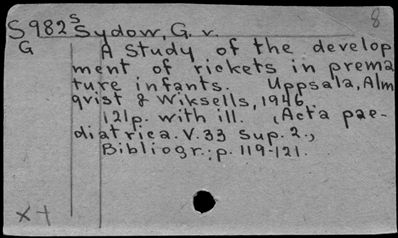 8
S982S Sydow, G. v.
G A study of the develop
ment of rickets in prema
ture infants. Uppsala, Alm
qvist & Wiksells, 1946.
121p. with ill. (Acta pae-
diatrica. V. 33 Sup. 2.,
Bibliogr.: p. 119-121.